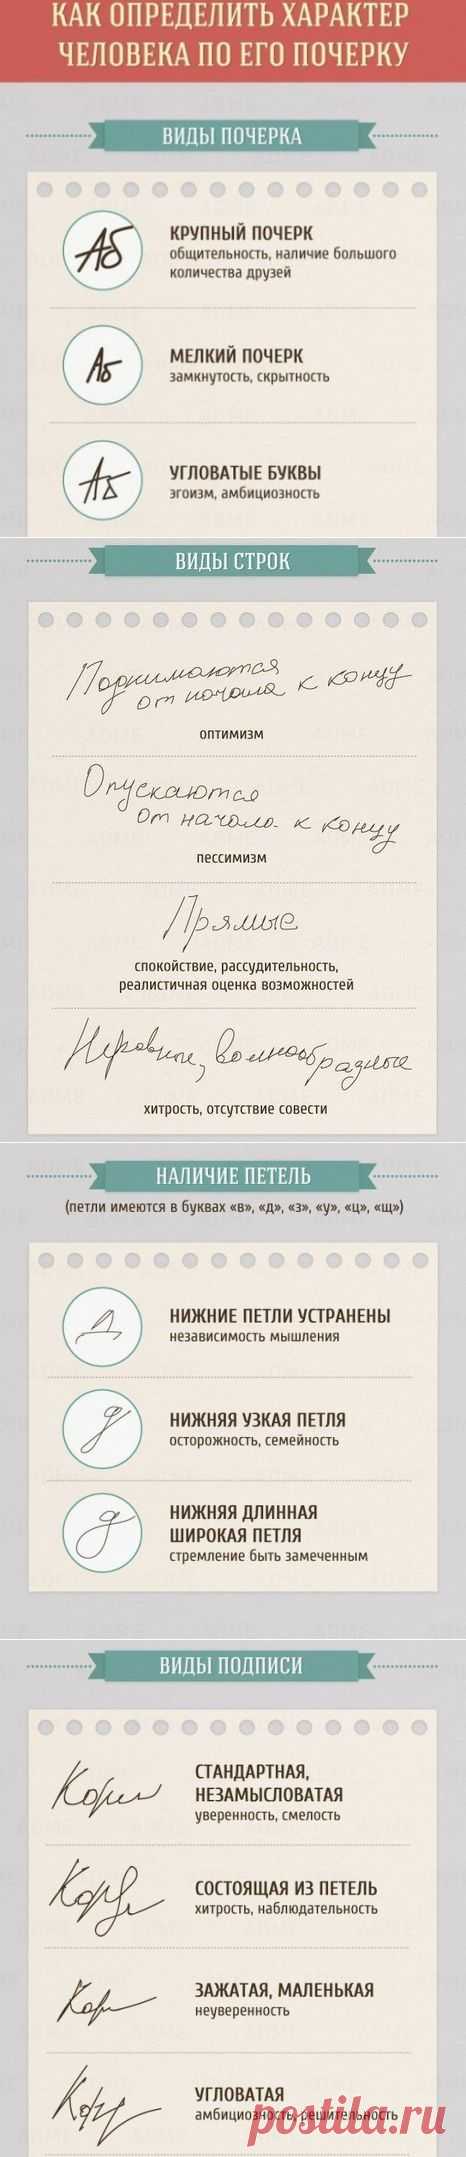 КАК ОПРЕДЕЛИТЬ ХАРАКТЕР
ЧЕЛОВЕКА ПО ЕГО ПОЧЕРКУ
ВИДЫ ПОЧЕРКА
Аб
КРУПНЫЙ ПОЧЕРК
общительность, наличие большого
количества друзей
Аб
МЕЛКИЙ ПОЧЕРК
замкнутость, скрытность
Аб
УГЛОВАТЫЕ БУКВЫ
эгоизм, амбициозность
ВИДЫ СТРОК
Поднимаются
от начала к концу
оптимизм
Опускаются
от начала к концу
пессимизм
Прямые
спокойствие, рассудительность,
реалистичная оценка возможностей
Неровные, волнообразные
хитрость, отсутствие совести
НАЛИЧИЕ ПЕТЕЛЬ
(петли имеются в буквах «в», «д», «з», «у», «ц», «щ»)
Д
НИЖНИЕ ПЕТЛИ УСТРАНЕНЫ
независимость мышления
д
НИЖНЯЯ УЗКАЯ ПЕТЛЯ
осторожность, семейность
д
НИЖНЯЯ ДЛИННАЯ
ШИРОКАЯ ПЕТЛЯ
стремление быть замеченным
ВИДЫ ПОДПИСИ
СТАНДАРТНАЯ,
НЕЗАМЫСЛОВАТАЯ
уверенность, смелость
СОСТОЯЩАЯ ИЗ ПЕТЕЛЬ
хитрость, наблюдательность
ЗАЖАТАЯ, МАЛЕНЬКАЯ
неуверенность
УГЛОВАТАЯ
амбициозность, решительность
postila.ru